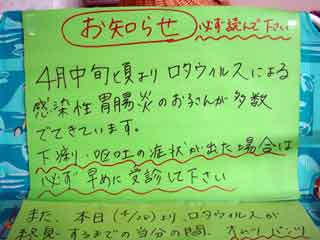 お知らせ 必ず読んで下さい
4月中旬頃より ロタウィルスによる
感染性胃腸炎のお子さんが多数
でてきています。
下痢・嘔吐の症状が出た場合は
必ず 早めに 受診して下さい
また、本日(4/20)より、ロタウィルスが
するまでの当分の間、オムツ パンツ